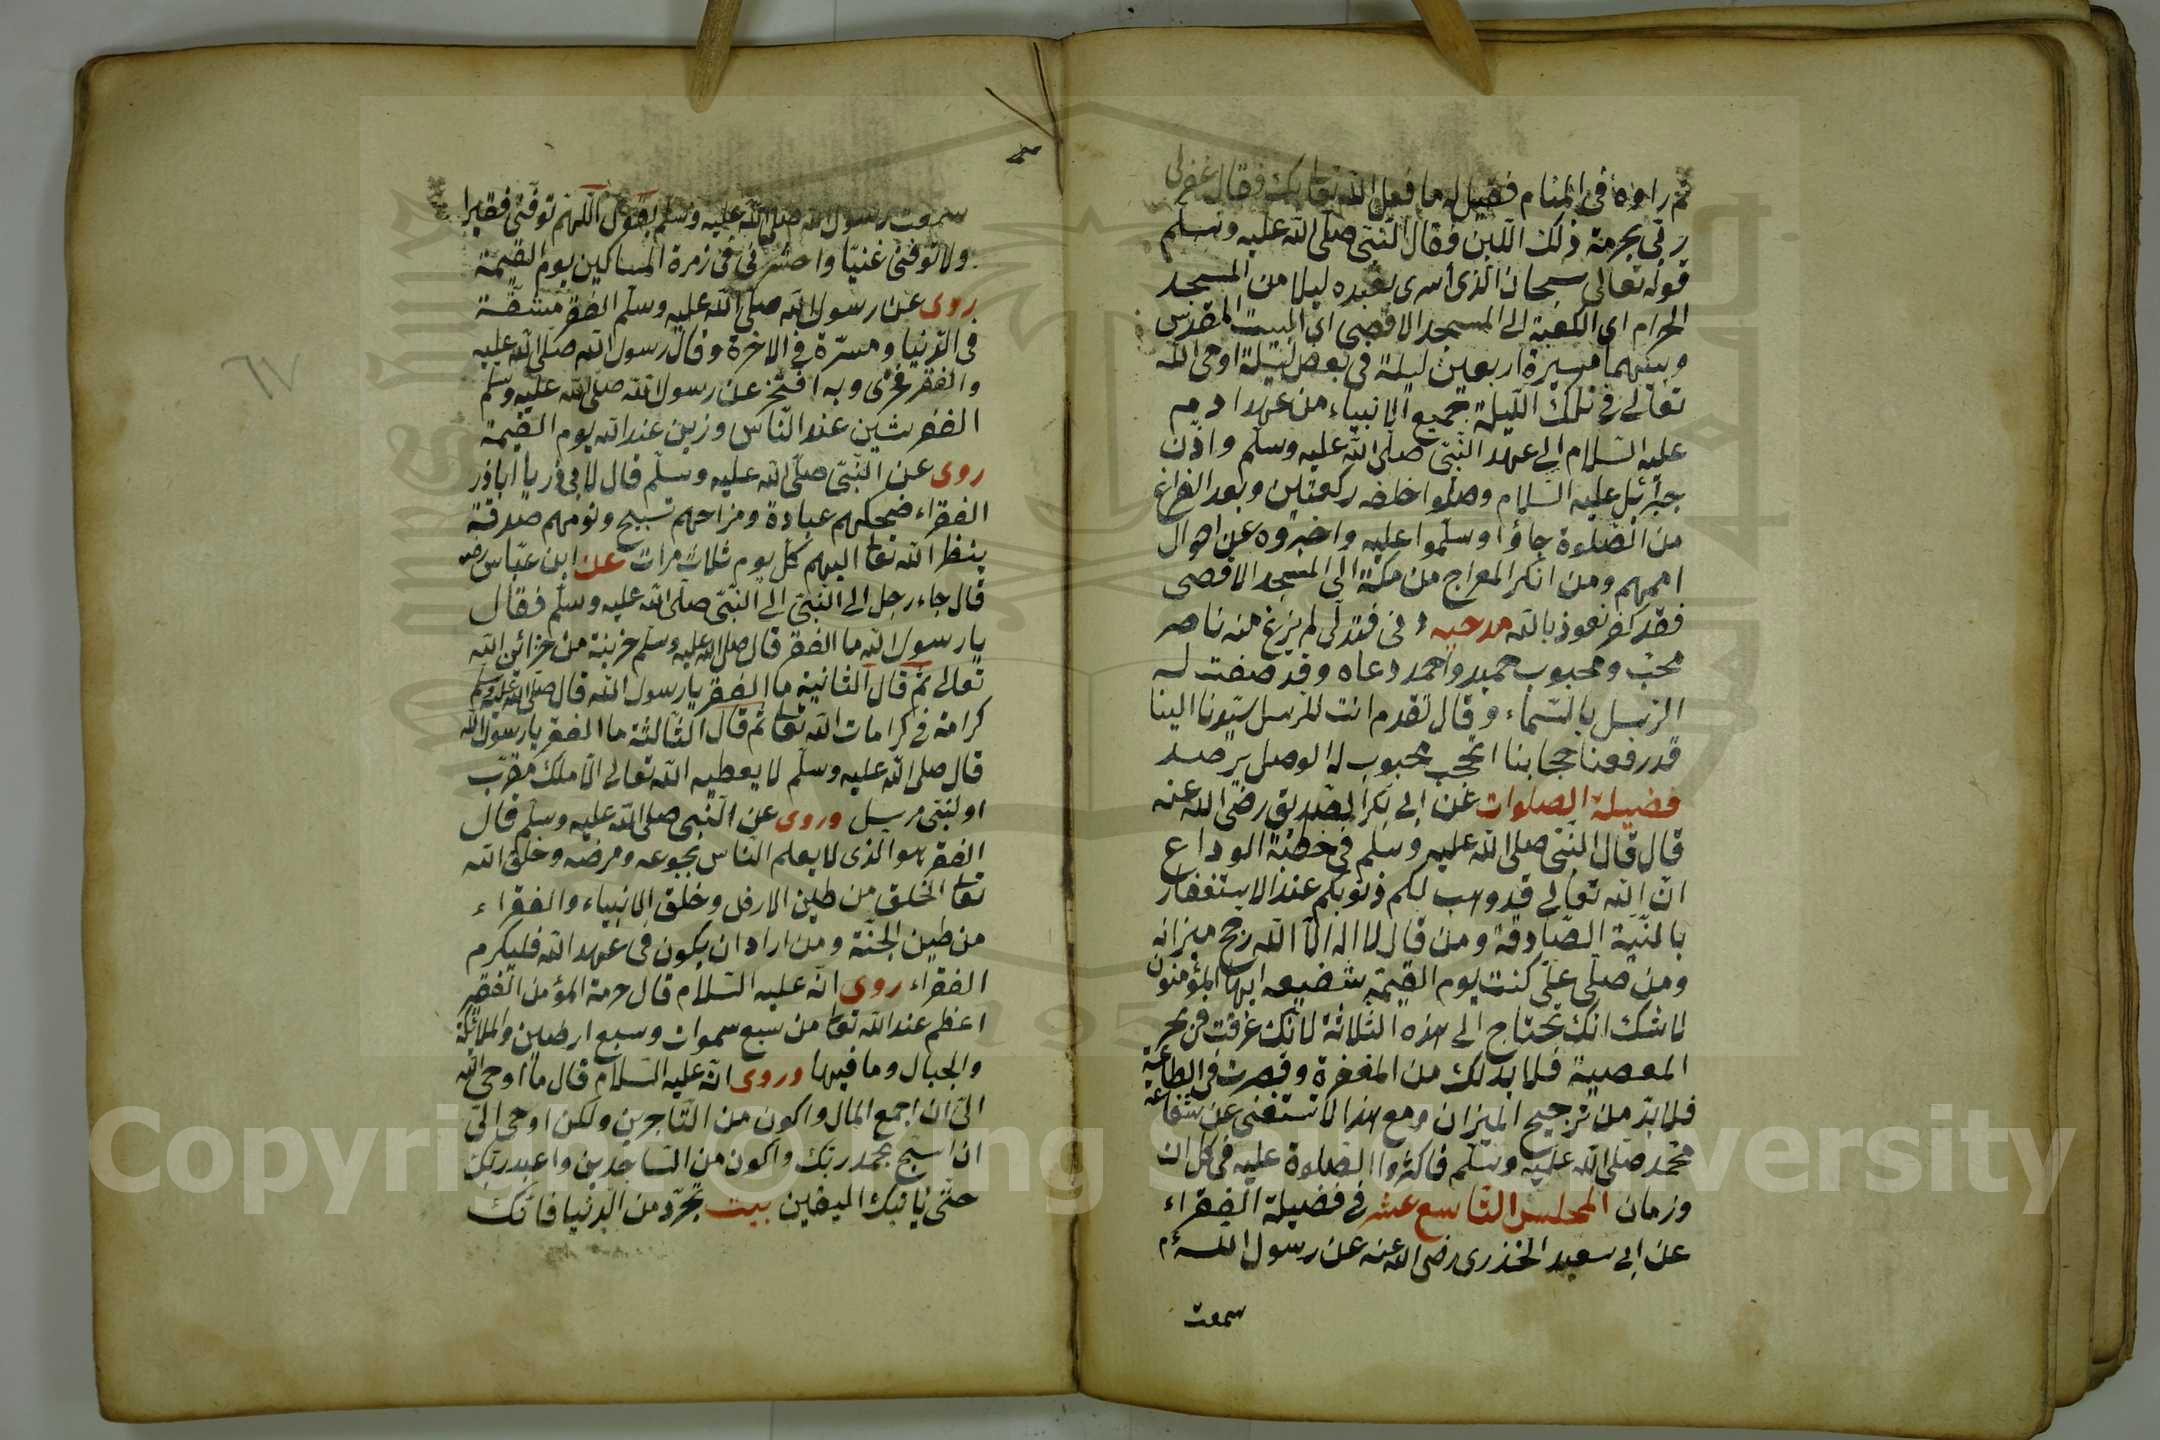 ثم راوه فى المنام فقيل له ما فعل الله تعا بك فقال غفرلى
ربى بحرمة ذلك اللبن فقال النبى صلى الله عليه وسلم
قوله تعالى سبحان الذى أسرى بعبده ليلا من المسجد
الحرام اى الكعبة الى المسجد الاقصى اى البيت المقدس
وبينهما مسيرة اربعين ليلة فى بعض ليلة اوحى الله
تعالى فى تلك الليلة جميع الانبياء من عهد ادم
عليه السلام الى عهد النبى صلى الله عليه وسلم واذن
جبرائيل عليه السلام وصلوا خلفه ركعتين وبعد الفراغ
من الصلوة جاؤا وسلموا عليه واخبروه عن اهوال
اممهم ومن انكر المعراج من مكة الى المسجد الاقصى
فقد كفر نعوذ بالله مدحيه دنى فتدلى لم يزغ منه ناصر
محب ومحبوب حميد واحمد دعاه وقد صفت له
الرسل بالسماء وقال تقدم انت للرسل سيدنا الينا
قد رفعنا حجابنا اتحجب محبوب له الوصل يرصد
فضيلة الصلوات عن ابى بكر الصديق رضى الله عنه
قال قال النبى صلى الله عليه وسلم فى خطبة الوداع
ان الله تعالى قد وهب لكم ذنوبكم عند الاستغفار
بالنية الصادقة ومن قال لا اله الا الله رجح ميزانه
ومن صلى على كنت يوم القيمة شفيعه ايها المؤمنون
لا شك انك تحتاج الى هذه الثلاثة لانك غرقت فى بحر
المعصية فلا بد لك من المغفرة وقصرت فى الطاعة
فلا بد من ترجيح الميزان ومع هذا لا تستغنى عن شفاعة
محمد صلى الله عليه وسلم فاكثروا الصلوة عليه فى كل ان
وزمان المجلس التاسع عشر فى فضيلة الفقراء
عن ابى سعيد الخذرى رضى الله عنه عن رسول الله م
سمعت
سمعت رسول الله صلى الله عليه وسلم يقول اللهم توفنى فقيرا
ولا توفنى غنيا واحشرنى فى زمرة المساكين يوم القيمة
روى عن رسول الله صلى الله عليه وسلم الفقر مشقة
فى الدنيا ومسرة فى الاخرة وقال رسول الله صلى الله عليه
والفقر فخرى وبه افتخر عن رسول الله صلى الله عليه وسلم
الفقر شين عند الناس وزين عند الله يوم القيمة
روى عن النبى صلى الله عليه وسلم قال لابى ذر يا اباذر
الفقراء ضحكهم عبادة ومزاحهم تسبيح ونومهم صدقة
ينظر الله تعا اليهم كل يوم ثلاث مرات عن ابن عباس رض
قال جاء رجل الى النبى الى النبى صلى الله عليه وسلم فقال
يا رسول الله ما الفقر قال صلى الله عليه وسلم خزينة من خزائن الله
تعالى ثم قال الثانية ما الفقر يا رسول الله قال صلى الله عليه وسلم
كرامة فى كرامات الله تعا ثم قال الثالثة ما الفقر يا رسول الله
قال صلى الله عليه وسلم لا يعطيه الله تعالى الا ملك مقرب
او لنبى مرسل وروى عن النبى صلى الله عليه وسلم قال
الفقر هو الذى لا يعلم الناس بجوعه ومرضه وخلق الله
تعا الخلق من طين الارض وخلق الانبياء والفقراء
من طين الجنة ومن اراد ان يكون فى عهد الله فليكرم
الفقراء روى انه عليه السلام قال حرمة المؤمن الفقير
اعظم عند الله تعا من سبع سموات وسبع ارضين والملائكة
والجبال وما فيها وروى انه عليه السلام قال ما اوحى الله
الى ان اجمع المال واكون من التاجرين ولكن اوحى الى
ان اسبح بحمد ربك واكون من الساجدين واعبد ربك
حتى ياتيك اليقين بيت تجرد من الدنيا فانك
٦٧
Copyright © King Saud University
1957